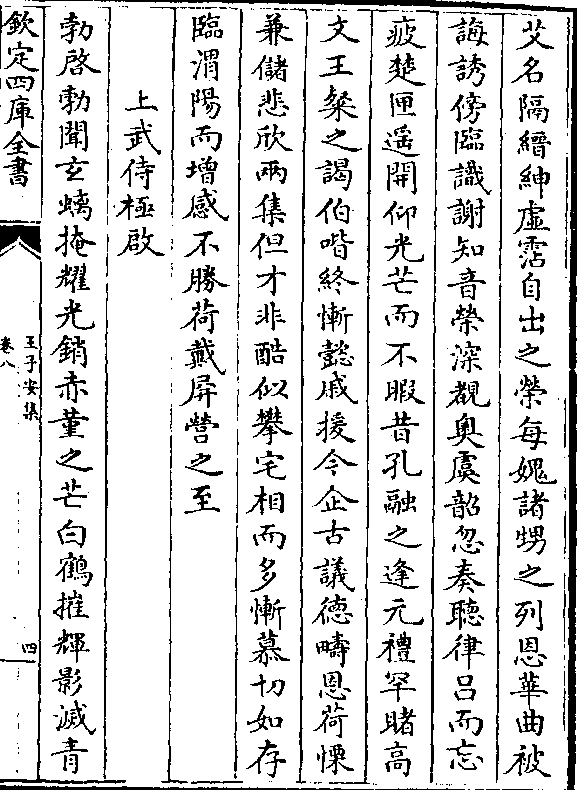 艾名隔縉紳虛霑自出之榮每媿諸甥之列恩華曲被
誨誘傍臨識謝知音榮深覩奥虞韶忽奏聽律吕而忘
疲楚匣遥開仰光芒而不暇昔孔融之逢元禮罕睹高
文王粲之謁伯喈終慚懿戚援今企古議徳疇恩荷慄
兼儲悲欣兩集但才非酷似攀宅相而多慚慕切如存
臨渭陽而增感不勝荷戴屏營之至
上武侍極啟
勃啓勃聞玄螭掩耀光銷赤堇之芒白鶴摧輝影滅青
欽定四庫全書
王子安集
卷八
四